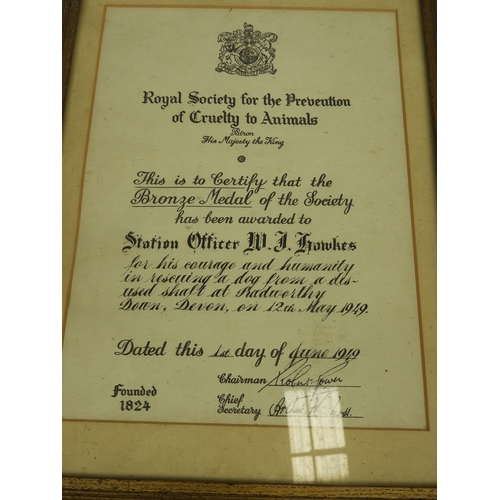 Royal Society for the Prevention
of Cruelty to Animals
Patron
His Majesty the King
This is to Certify that the
Bronze Medal of the Society
has been awarded to
Station Officer W. J. Hawkes
for his courage and humanity
in rescuing a dog from a dis-
used shaft at Radworthy
Down, Devon, on 12th May 1949.
Dated this 1st day of June 1949
Chairman Robert Gower
Founded
1824
Chief
Secretary Arthur W.